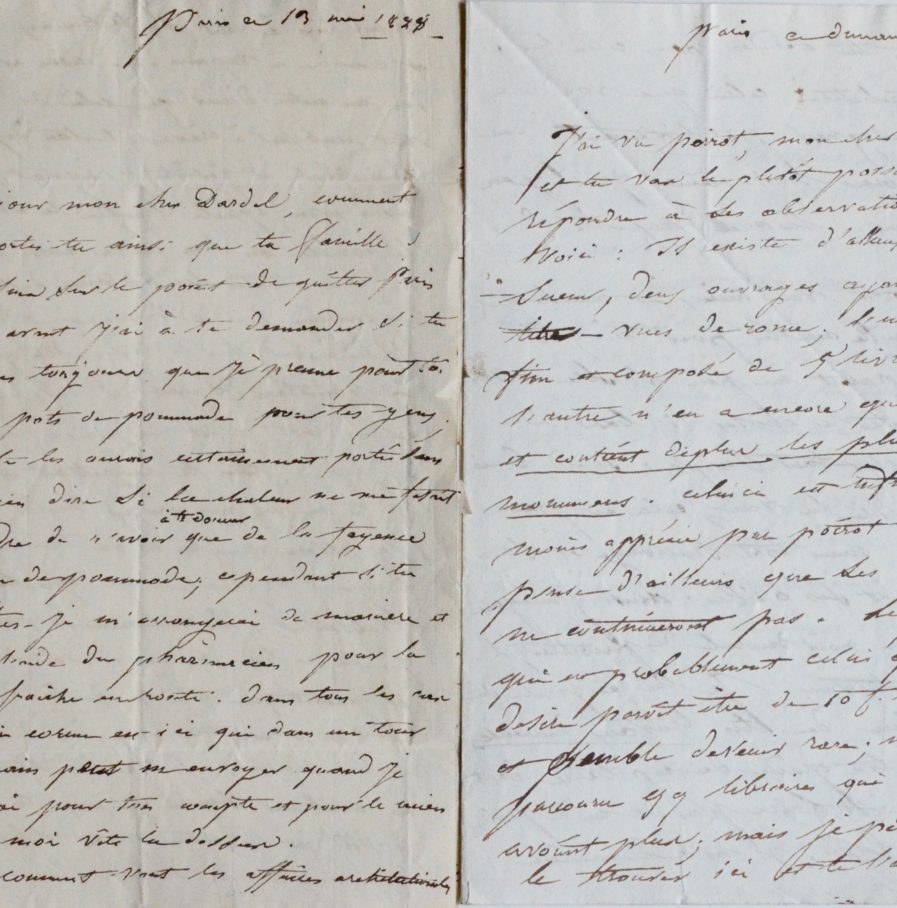 Paris ce 13 mai 1828
jour mon cher Dardel, comment
portes-tu ainsi que ta famille ;
suis sur le point de quitter Paris
avant j'ai à te demander si tu
toujours que je prenne pour toi
pots de pommade pour tes yeux.
te les aurois certainement portés sans
rien dire si la chaleur ne me faisait
à te donner
de n'avoir que de la fayence
de pommade ; cependant si tu
je m'arrangerai de manière et
du pharmacien pour la
fraîche en route. dans tous les cas
comme est ici qui dans un tour
main peut m'envoyer quand je
pour ton compte et pour le mien
moi vite là dessus.
comment vont les affaires architecturales
Paris ce diman
J'ai vu poirot, mon cher
et tu vas le plutôt poss
répondre à ses observatio
Voici : Il existe d'
deux ouvrages aya
titre vues de rome ; l'u
fini et composé de 5 livr
l'autre n'en a encore qu
et contient deplus les plu
monumens. celui ci est
moins apprécié par poirot
pense d'ailleurs que les
ne continueront pas. Le
qui est probablement celui q
desire paroît être de 50 f.
et semble devenir rare ;
parcouru libraires qui
avoient plus ; mais je p
le trouver ici et te l'